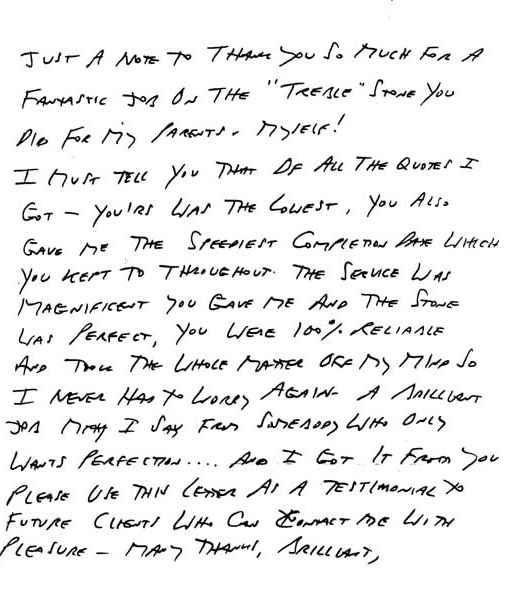 JUST A NOTE TO THANK YOU SO MUCH FOR A
FANTASTIC JOB ON THE "TREBLE" STONE YOU
DID FOR MY PARENTS - MYSELF!
I MUST TELL YOU THAT OF ALL THE QUOTES I
GOT - YOU'RS WAS THE LOWEST, YOU ALSO
GAVE ME THE SPEEDIEST COMPLETION DATE WHICH
YOU KEPT TO THROUGHOUT. THE SERVICE WAS
MAGNIFICENT YOU GAVE ME AND THE STONE
WAS PERFECT, YOU WERE 100% RELIABLE
AND TOOK THE WHOLE MATTER OFF MY MIND SO
I NEVER HAD TO WORRY AGAIN - A BRILLIANT
JOB MAY I SAY FROM SOMEBODY WHO ONLY
WANTS PERFECTION.... AND I GOT IT FROM YOU
PLEASE USE THIS LETTER AS A TESTIMONIAL TO
FUTURE CLIENTS WHO CAN CONTACT ME WITH
PLEASURE - MANY THANKS, BRILLIANT,